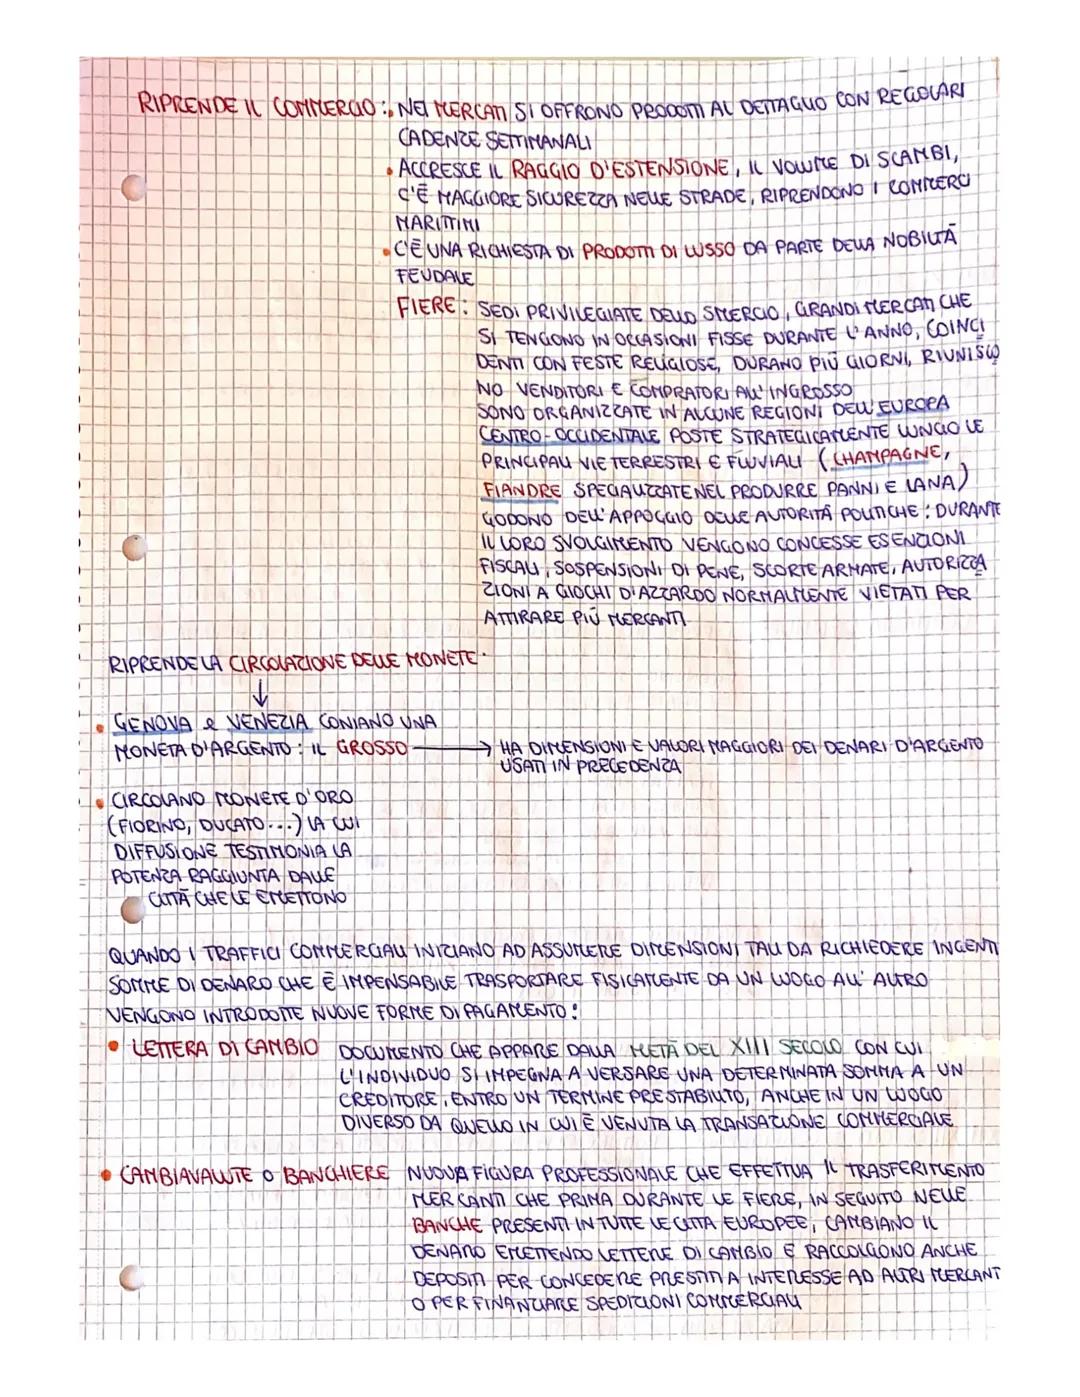 RIPRENDE IL COMMERCIO: • NEI MERCATI SI OFFRONO PRODOTTI AL DETTAGLIO CON REGOLARI
CADENZE SETTIMANALI
• ACCRESCE IL RAGGIO D'ESTENSIONE, IL VOLUME DI SCAMBI,
C'È MAGGIORE SICUREZZA NELLE STRADE, RIPRENDONO I COMMERCI
MARITTIMI
• C'È UNA RICHIESTA DI PRODOTTI DI LUSSO DA PARTE DELLA NOBILTÀ
FEUDALE
FIERE: SEDI PRIVILEGIATE DELLO SMERCIO, GRANDI MERCATI CHE
SI TENGONO IN OCCASIONI FISSE DURANTE L'ANNO, COINCI
DENTI CON FESTE RELIGIOSE, DURANO PIÙ GIORNI, RIUNISCO
NO VENDITORI E COMPRATORI ALL'INGROSSO
SONO ORGANIZZATE IN ALCUNE REGIONI DELL'EUROPA
CENTRO-OCCIDENTALE POSTE STRATEGICAMENTE LUNGO LE
PRINCIPALI VIE TERRESTRI E FLUVIALI (CHAMPAGNE,
FIANDRE SPECIALIZZATE NEL PRODURRE PANNI E LANA)
GODONO DELL'APPOGGIO DELLE AUTORITÀ POLITICHE: DURANTE
IL LORO SVOLGIMENTO VENGONO CONCESSE ESENZIONI
FISCALI, SOSPENSIONI DI PENE, SCORTE ARMATE, AUTORIZZA
ZIONI A GIOCHI D'AZZARDO NORMALMENTE VIETATI PER
ATTIRARE PIÙ MERCANTI
RIPRENDE LA CIRCOLAZIONE DELLE MONETE.
↓
• GENOVA e VENEZIA CONIANO UNA
MONETA D'ARGENTO: IL GROSSO → HA DIMENSIONI E VALORI MAGGIORI DEI DENARI D'ARGENTO
USATI IN PRECEDENZA
• CIRCOLANO MONETE D'ORO
(FIORINO, DUCATO...) LA CUI
DIFFUSIONE TESTIMONIA LA
POTENZA RAGGIUNTA DALLE
CITTÀ CHE LE EMETTONO
QUANDO I TRAFFICI COMMERCIALI INIZIANO AD ASSUMERE DIMENSIONI TALI DA RICHIEDERE INGENTI
SOMME DI DENARO CHE È IMPENSABILE TRASPORTARE FISICAMENTE DA UN LUOGO ALL'ALTRO
VENGONO INTRODOTTE NUOVE FORME DI PAGAMENTO:
• LETTERA DI CAMBIO DOCUMENTO CHE APPARE DALLA METÀ DEL XIII SECOLO CON CUI
L'INDIVIDUO SI IMPEGNA A VERSARE UNA DETERMINATA SOMMA A UN
CREDITORE, ENTRO UN TERMINE PRESTABILITO, ANCHE IN UN LUOGO
DIVERSO DA QUELLO IN CUI È VENUTA LA TRANSAZIONE COMMERCIALE
• CAMBIAVALUTE O BANCHIERE NUOVA FIGURA PROFESSIONALE CHE EFFETTUA IL TRASFERIMENTO
MERCANTI CHE PRIMA DURANTE LE FIERE, IN SEGUITO NELLE
BANCHE PRESENTI IN TUTTE LE CITTÀ EUROPEE, CAMBIANO IL
DENARO EMETTENDO LETTERE DI CAMBIO E RACCOLGONO ANCHE
DEPOSITI PER CONCEDERE PRESTITI A INTERESSE AD ALTRI MERCANT
O PER FINANZIARE SPEDIZIONI COMMERCIALI